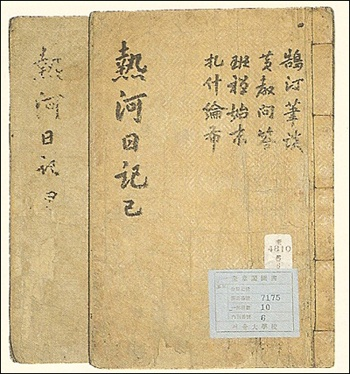 鵠汀筆談
黃教問答
班禪始末
札什倫布
熱河日記 己
熱河日記
4810
7175
10
6
서울大學校